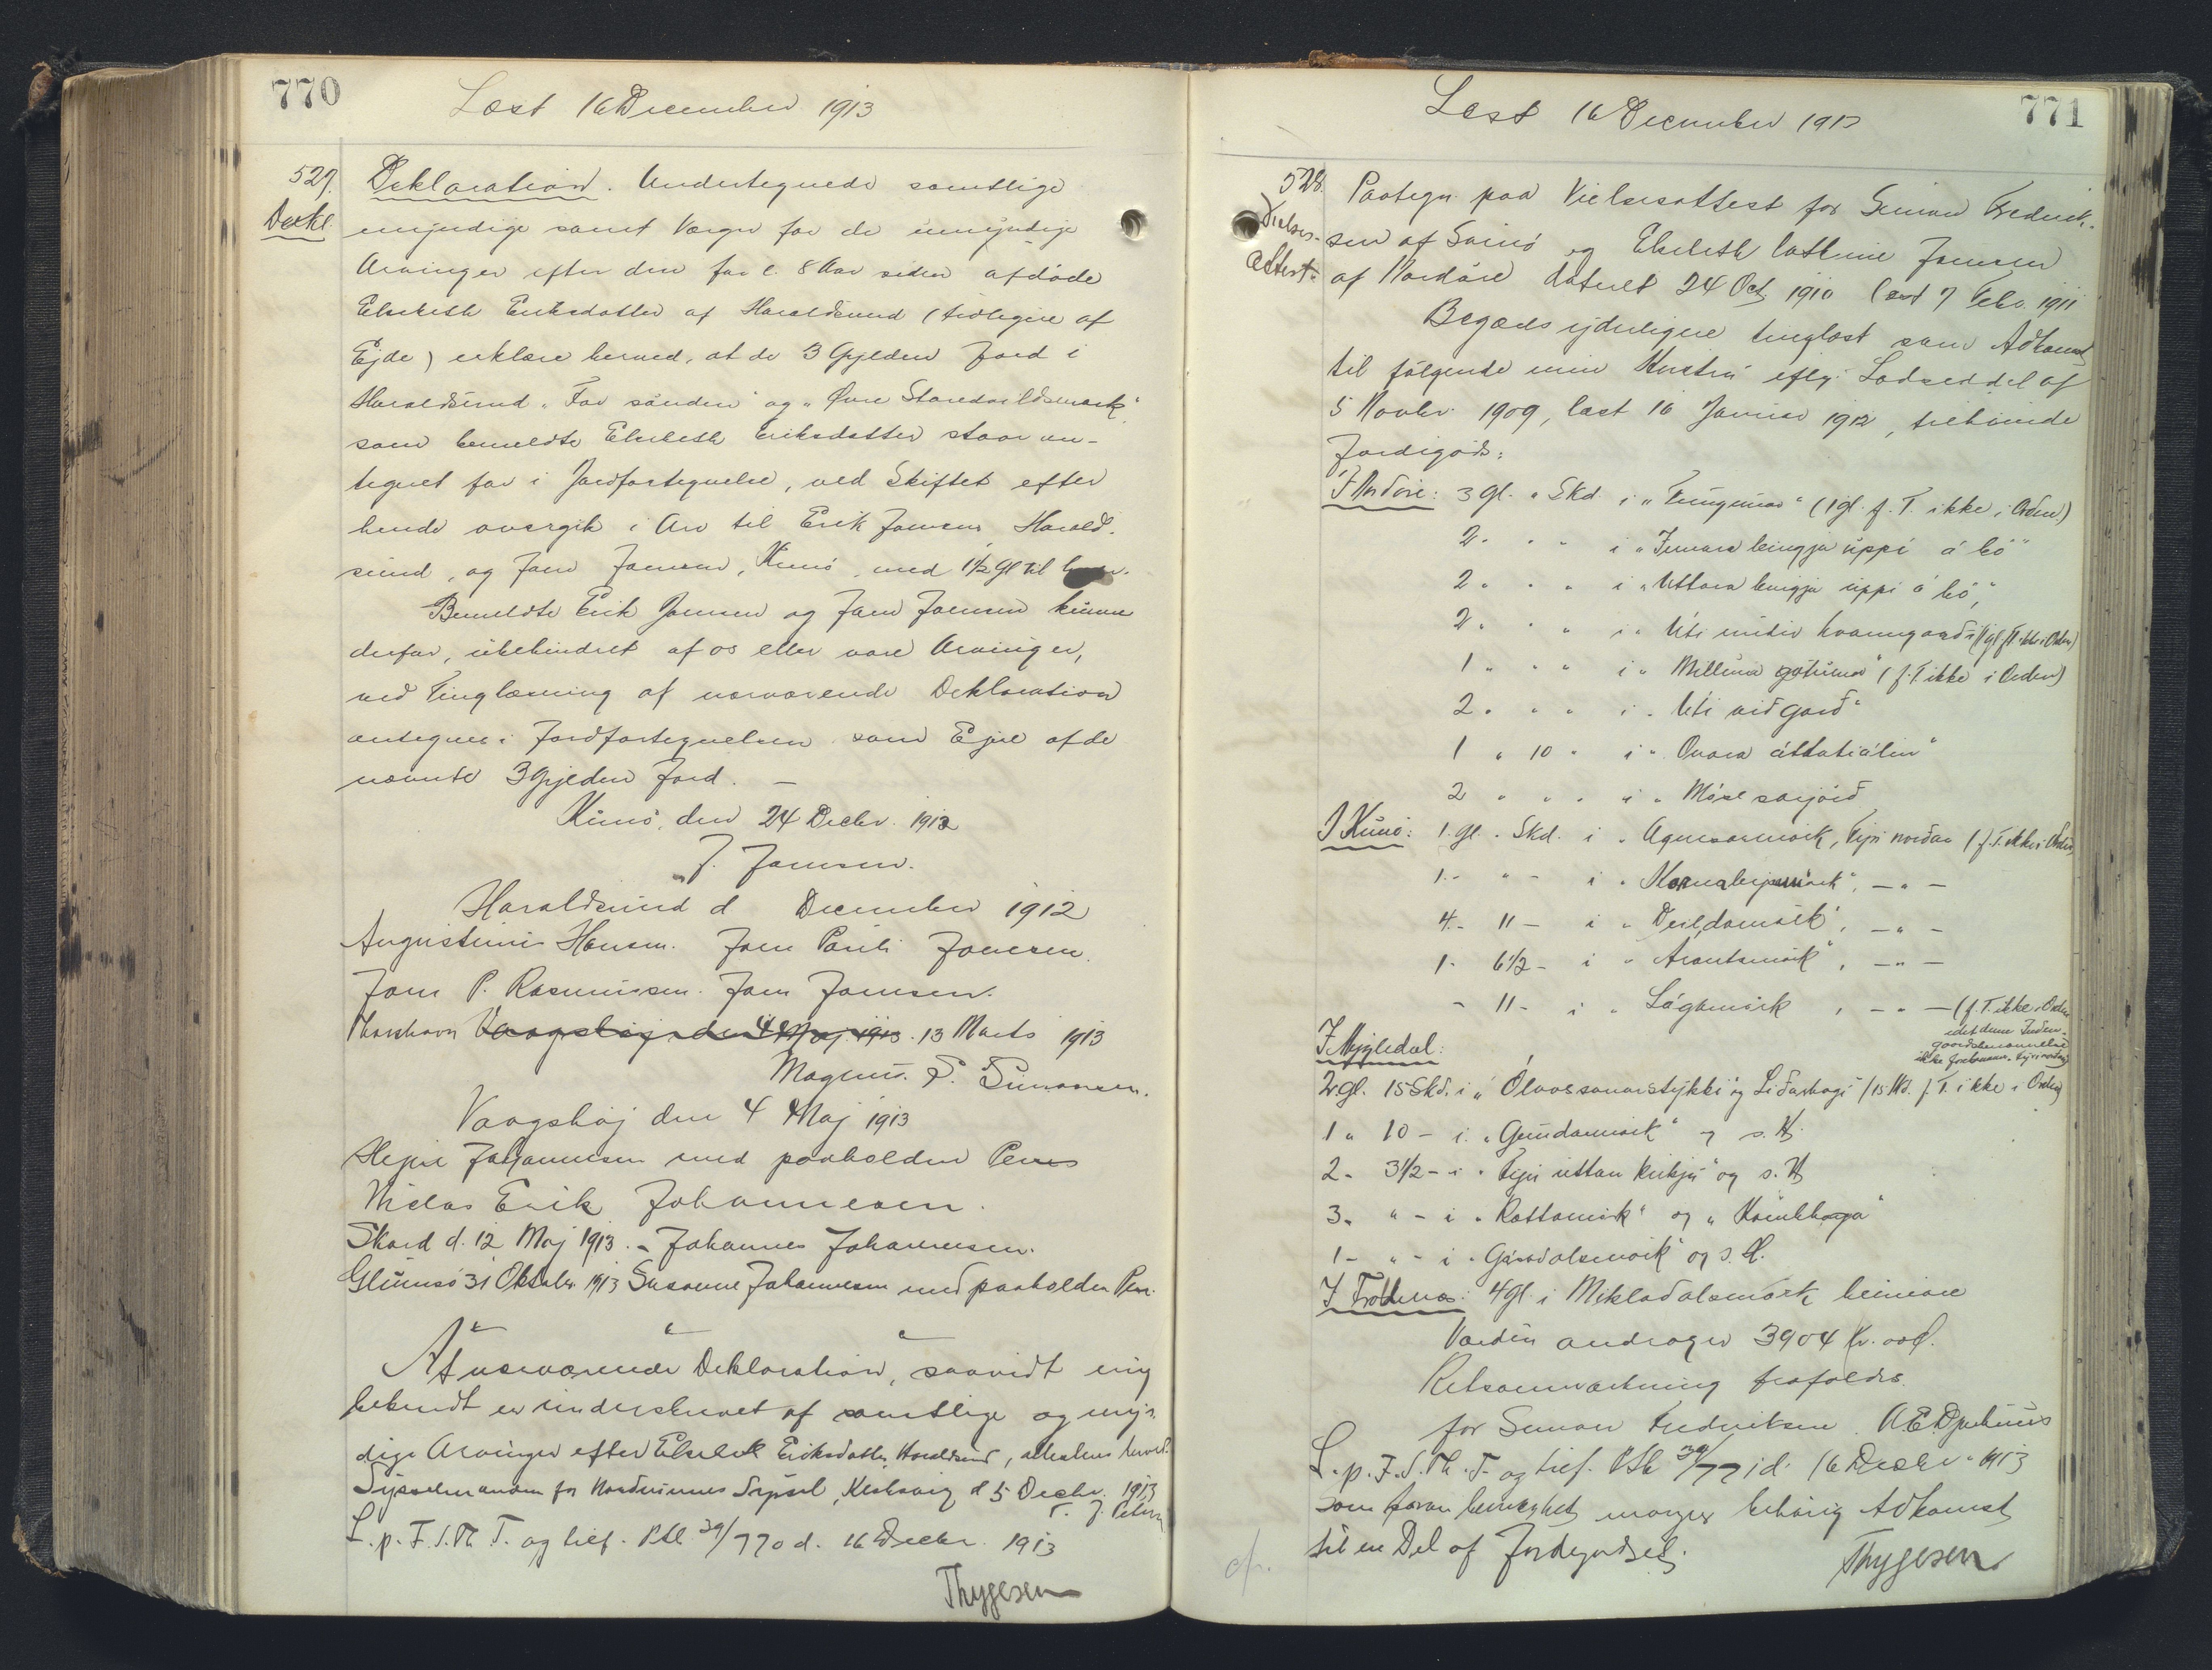 770
Læst 16 December 1913
527.
Dekl.
Deklaration. Undertegnede samtlige
myndige samt Værger for de umyndige
Arvinger efter den for c. 8 Aar siden afdøde
Elsebeth Eriksdatter af Haraldsund (tidligere af
Ejde) erklære herved, at de 3 Gyldens Jord i
Haraldsund "Far sunden" og "Øvre Storedeildsmark",
som bemeldte Elsebeth Eriksdatter staar an-
tegnet for i Jordfortegnelse, ved Skiftet efter
hende overgik i Arv til Erik Joensen Harald-
sund, og Joen Joensen, Kunø, med 1½ Gl til hver.
Bemeldte Erik Joensen og Joen Joensen kunne
derfor, ubehindret af os eller vore Arvinger,
ved Tinglæsning af nærværende Deklaration
antegnes i Jordfortegnelsen som Ejere af de
nævnte 3 Gylden Jord. —
Kunø, den 24 Decbr. 1912
J. Joensen.
Haraldsund d December 1912
Augustinus Hansen. Joen Pauli Joensen.
Joen P. Rasmussen. Joen Joensen.
Thorshavn Vaagshøj den 4 Maj 1913. 13 Marts 1913
Magnus S. Simonsen.
Vaagshøj den 4 Maj 1913
Johannesen med paaholden Pen
Niclas Erik Johannesen.
Skaard d. 12 Maj 1913. - Johannes Johannesen.
Glümsø 31 Oktober 1913 Susanne Johannesen med paaholden Pen.
At nærværende Deklaration, saavidt mig
bekendt er underskrevet af samtlige og myn-
dige Arvinger efter Elsebeth Eriksdatter, Haraldsund, attesteres herved.
Sysselmanden for Norderøernes Syssel, Klaksvig d 5 Decbr. 1913
L. p. F. S. Th. T. og tilf. Ptb 39/770 d. 16 Decbr. 1913
Thygesen
771
Læst 16 December 1913
528.
Vielses-
Attest
Paategn. paa Vielsesattest for Simon Fredrik-
sen af Svinø og Elsebeth Cathrine Joensen
af Nordøre dateret 24 Oct 1910 læst 7 Febr. 1911
Begæres yderligere tinglæst som Adkomst
til følgende min Hustru iflg. Lodseddel af
5 Novbr. 1909, læst 16 Januar 1912, tilhørende
Jordegods:
I Nordøre: 3 Gl. " Skd. i "Tungunes" (1 gl. f. T. ikke i Orden)
2 " " " i "Innara leingja uppi á bø"
2 " " " i "Uttara leingja uppi á bø",
2 " " " i "Uti undir hvanngard" (1 gl f T. ikke i Orden)
1 " " " i "Millum gøtuna" (f. T. ikke i Orden)
2 " " " i "Uti við gard"
1 " 10 " i "Ovara áttatiálin"
2 " " " i "
I Kunø: 1 gl. " Skd. i "Agnesarmørk, Fyri nordan (f. T. ikke i Orden)
1 - " - i " — " —
4 - 11 - i "Deildamørk", — " —
1 - 6½ - i " — " —
- 11 - i "Lágamørk , — " — (f. T. ikke i Orden
idet denne Inden-
gaardsbenævnelse
ikke forekommer "Fyri nordan")
I Mygledal:
2 gl. 15 Skd. i " og Lidarhagi" (15 Skd. f. T. ikke i Orden)
1 " 10 - i "Gundarmørk" og s. H.
2 - 3½ - i "Fyri uttan kirkju" og s. H
3 - " - i og
1 - " - i og s. H.
I Trøllenæs: 4 gl. i Mikladalsmørk
Værdien andrager 3904 Kr. 00 Ø.
Retsanmærkning frafaldes.
for Simon Fredriksen
L. p. F. S. Th. T. og tilf. Ptb 39/771 d. 16 Decbr. 1913
som foran bemærket mangler behørig Adkomst
til en Del af Jordegodset.
Thygesen
cfr.